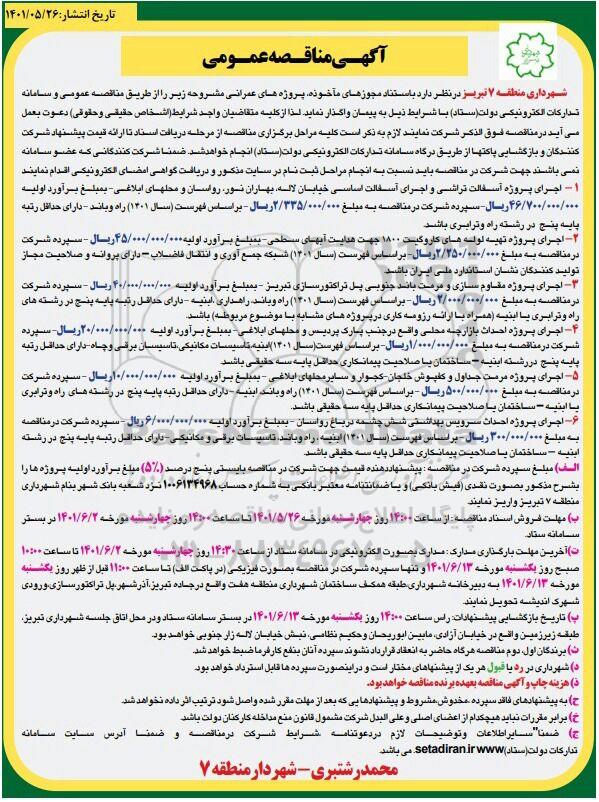 تاریخ انتشار:۱۴۰۱/۰۵/۲۶
آگهی مناقصه عمومی
شهرداری منطقه ۷ تبریز در نظر دارد باستناد مجوزهای مأخوذه، پروژه های عمرانی مشروحه زیر را از طریق مناقصه عمومی و سامانه
تدارکات الکترونیکی دولت(ستاد) با شرایط ذیل به پیمان واگذار نماید. لذا از کلیه متقاضیان واجد شرایط(اشخاص حقیقی و حقوقی) دعوت بعمل
می آید در مناقصه فوق الذکر شرکت نمایند لازم به ذکر است کلیه مراحل برگزاری مناقصه از مرحله دریافت اسناد تا ارائه قیمت پیشنهاد شرکت
کنندگان و بازگشایی پاکتها از طریق درگاه سامانه تدارکات الکترونیکی دولت(ستاد) انجام خواهد شد. ضمنا شرکت کنندگانی که عضو سامانه
نمی باشند جهت شرکت در مناقصه باید نسبت به انجام مراحل ثبت نام در سایت مذکور و دریافت گواهی امضای الکترونیکی اقدام نمایند
۱- اجرای پروژه آسفالت تراشی و اجرای آسفالت اساسی خیابان لاله، بهاران نور، رواسان و محلهای ابلاغی- بمبلغ برآورد اولیه
۴۶/۷۰۰/۰۰۰/۰۰۰ریال- سپرده شرکت در مناقصه به مبلغ ۲/۳۳۵/۰۰۰/۰۰۰ریال - براساس فهرست (سال ۱۴۰۱) راه و باند - دارای حداقل رتبه
پایه پنج در رشته راه و ترابری باشد.
۲- اجرای پروژه تهیه لوله های کاروگیت ۱۸۰۰ جهت هدایت آبهای سطحی- بمبلغ برآورد اولیه ۴۵/۰۰۰/۰۰۰/۰۰۰ریال - سپرده شرکت
در مناقصه به مبلغ ۲/۲۵۰/۰۰۰/۰۰۰ریال- براساس فهرست (سال ۱۴۰۱) شبکه جمع آوری و انتقال فاضلاب - دارای پروانه و صلاحیت مجاز
تولید کنندگان نشان استاندارد ملی ایران باشد.
۳- اجرای پروژه مقاوم سازی و مرمت باند جنوبی پل تراکتورسازی تبریز - بمبلغ برآورد اولیه ۴۰/۰۰۰/۰۰۰/۰۰۰ریال - سپرده شرکت
در مناقصه به مبلغ ۲/۰۰۰/۰۰۰/۰۰۰ریال - براساس فهرست (سال ۱۴۰۱) راه و باند، راهداری، ابنیه - دارای حداقل رتبه پایه پنج در رشته های
راه و ترابری یا ابنیه (همراه با ارائه رزومه کاری در پروژه های مشابه با موضوع مربوطه) باشد.
۴- اجرای پروژه احداث بازارچه محلی واقع در جنب پارک پردیس و محلهای ابلاغی- بمبلغ برآورد اولیه ۲۰/۰۰۰/۰۰۰/۰۰۰ریال - سپرده
شرکت در مناقصه به مبلغ ۱/۰۰۰/۰۰۰/۰۰۰ریال- براساس فهرست(سال ۱۴۰۱)ابنیه تاسیسات مکانیکی،تاسیسات برقی و چاه- دارای حداقل رتبه
پایه پنج در رشته ابنیه - ساختمان یا صلاحیت پیمانکاری حداقل پایه سه حقیقی باشد.
۵- اجرای پروژه مرمت جداول و کفپوش خلجان- کجوار و سایر محلهای ابلاغی - بمبلغ برآورد اولیه ۱۰/۰۰۰/۰۰۰/۰۰۰ریال - سپرده شرکت
در مناقصه به مبلغ ۵۰۰/۰۰۰/۰۰۰ ریال - براساس فهرست (سال ۱۴۰۱) راه و باند، ابنیه - دارای حداقل رتبه پایه پنج در رشته های راه و ترابری
یا ابنیه - ساختمان یا صلاحیت پیمانکاری حداقل پایه سه حقیقی باشد.
۶- اجرای پروژه احداث سرویس بهداشتی شش چشمه در باغ رواسان - بمبلغ برآورد اولیه ۶/۰۰۰/۰۰۰/۰۰۰ ریال - سپرده شرکت در مناقصه
به مبلغ ۳۰۰/۰۰۰/۰۰۰ ریال - براساس فهرست (سال ۱۴۰۱) ابنیه، راه و باند، تاسیسات برقی و مکانیکی- دارای حداقل رتبه پایه پنج در رشته
ابنیه - ساختمان یا صلاحیت پیمانکاری حداقل پایه سه حقیقی باشد.
الف) مبلغ سپرده شرکت در مناقصه : پیشنهاد دهنده قیمت جهت شرکت در مناقصه بایستی پنج درصد (۵٪) مبلغ برآورد اولیه پروژه ها را
بشرح مذکور بصورت نقدی (فیش بانکی) و یا ضمانتنامه معتبر بانکی به شماره حساب ۱۰۰۶۱۳۴۹۶۸ نزد شعبه بانک شهر بنام شهرداری
منطقه ۷ تبریز واریز نمایند.
ب) مهلت فروش اسناد مناقصه : از ساعت ۱۴:۰۰ روز چهارشنبه مورخه ۱۴۰۱/۵/۲۶ تا ساعت ۱۴:۰۰ روز چهارشنبه مورخه ۱۴۰۱/۶/۲ در بستر
سامانه ستاد.
ت) آخرین مهلت بارگذاری مدارک : مدارک بصورت الکترونیکی در سامانه ستاد از ساعت ۱۴:۳۰ روز چهارشنبه مورخه ۱۴۰۱/۶/۲ تا ساعت ۱۰:۰۰
صبح روز یکشنبه مورخه ۱۴۰۱/۶/۱۳ و تنها سپرده شرکت در مناقصه بصورت فیزیکی (در پاکت الف) تا ساعت ۱۱:۰۰ قبل از ظهر روز یکشنبه
مورخه ۱۴۰۱/۶/۱۳ به دبیرخانه شهرداری،طبقه همکف ساختمان شهرداری منطقه هفت واقع در جاده تبریز،آذرشهر،پل تراکتورسازی،ورودی
شهرک اندیشه تحویل نمایند.
پ) تاریخ بازگشایی پیشنهادات: راس ساعت ۱۴:۰۰ روز یکشنبه مورخه ۱۴۰۱/۶/۱۳ در بستر سامانه ستاد و در محل اتاق جلسه شهرداری تبریز،
طبقه زیرزمین واقع در خیابان آزادی، مابین ابوریحان و حکیم نظامی، نبش خیابان لاله زار جنوبی خواهد بود.
ث) برندگان اول، دوم مناقصه هرگاه حاضر به انعقاد قرارداد نشوند سپرده آنان بنفع کارفرما ضبط خواهد شد.
د) شهرداری در رد یا قبول هر یک از پیشنهادهای مختار است و در اینصورت سپرده ها قابل استرداد خواهد بود.
ذ) هزینه چاپ و آگهی مناقصه بعهده برنده مناقصه خواهد بود.
ح) به پیشنهادهای فاقد سپرده ،مخدوش،مشروط و پیشنهادهایی که بعد از مهلت مقرر شده واصل شود ترتیب اثر داده نخواهد شد.
خ) برابر مقررات نباید هیچکدام از اعضای اصلی و علی البدل شرکت مشمول قانون منع مداخله کارکنان دولت باشد.
ج) ضمنا"سایر اطلاعات وتوضیحات لازم در دعوتنامه ،شرایط شرکت در مناقصه و ضمنا آدرس سایت سامانه
تدارکات دولت(ستاد)www.setadiran.ir می باشد.
محمد رشتبری - شهردار منطقه ۷